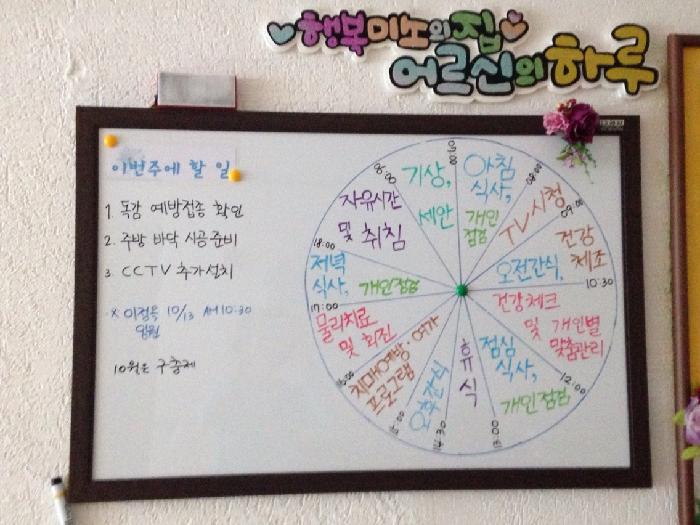 행복미노의집
어르신의하루
이번주에 할 일
1. 독감 예방접종 확인
2. 주방 바닥 시공준비
3. CCTV 추가설치
10/13 AM 10:30
10월은 구충제
기상,
세안
아침
식사,
개인
점검
TV시청
건강
체조
오전간식,
건강체크
및 개인별
맞춤관리
점심
식사,
개인점검
휴식
오후간식
치매예방·여가
프로그램
물리치료
및 회진
저녁
식사, 개인점검
자유시간
및 취침
06:00
08:00
09:00
10:30
12:00
13:00
17:00
18:00